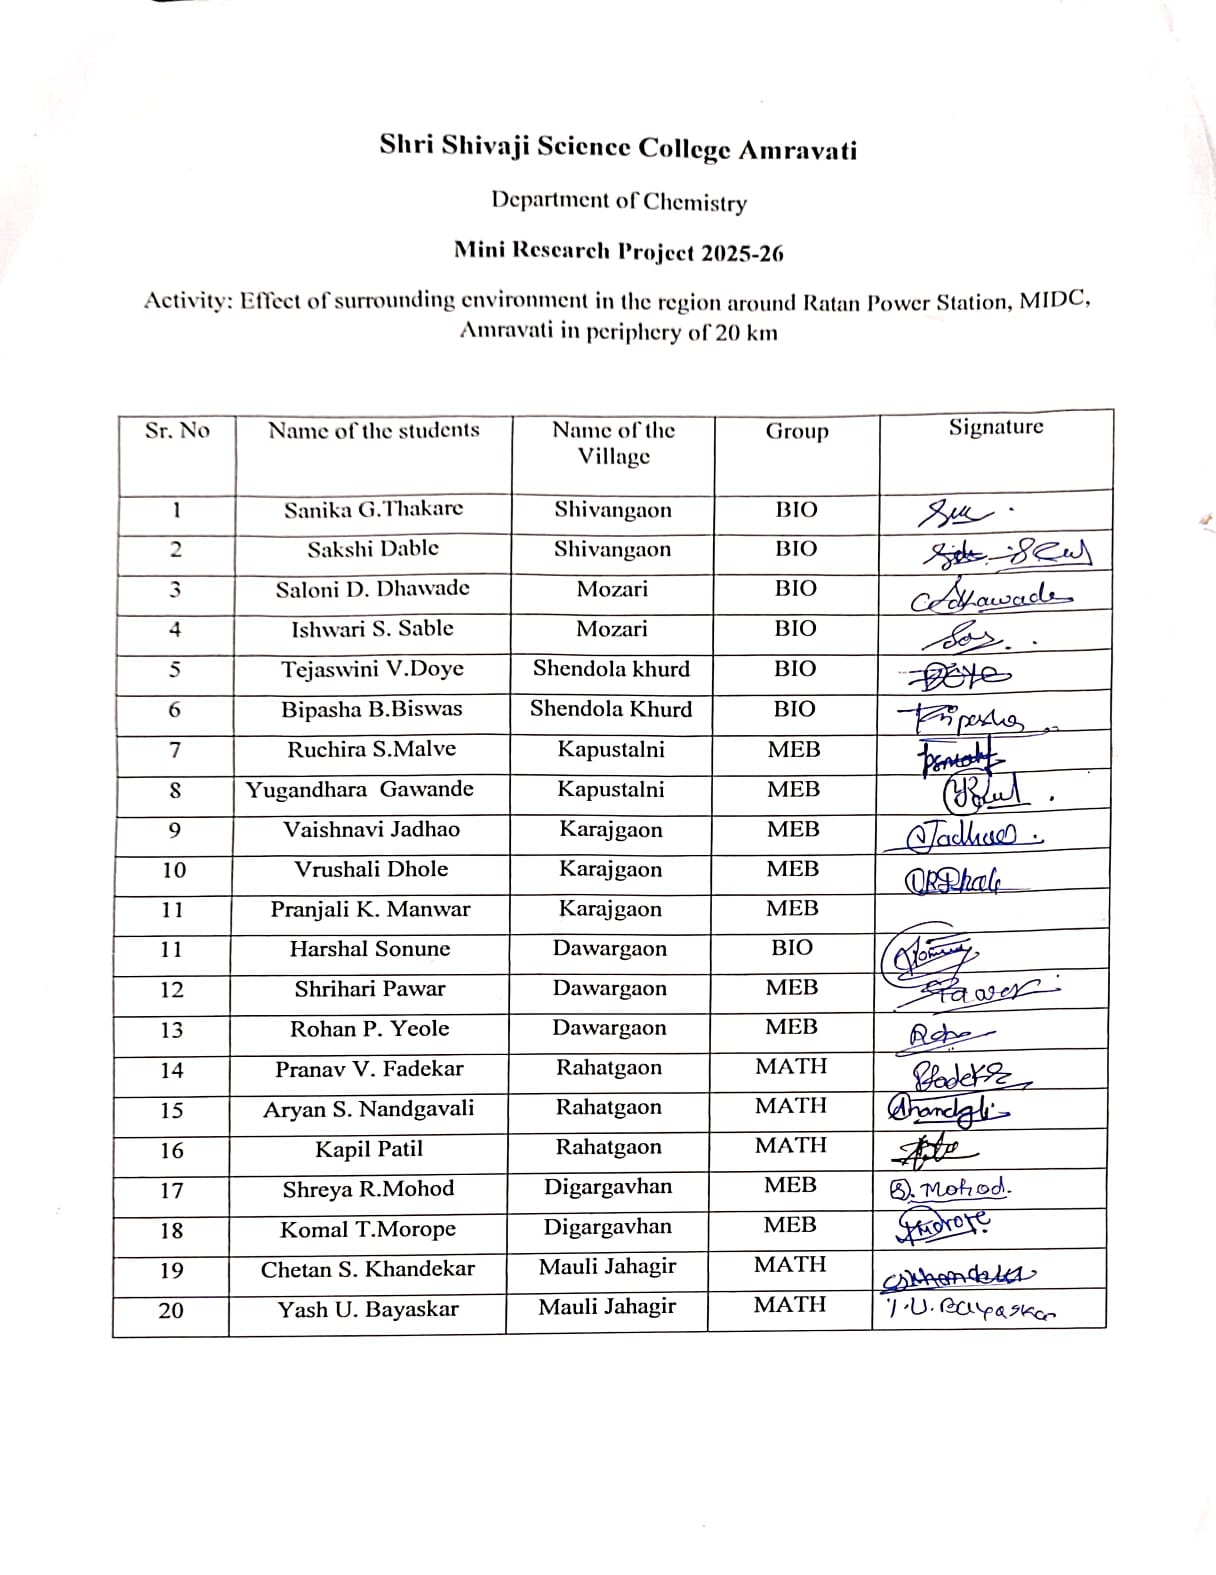 Shri Shivaji Science College Amravati
Department of Chemistry
Mini Research Project 2025-26
Activity: Effect of surrounding environment in the region around Ratan Power Station, MIDC,
Amravati in periphery of 20 km
Sr. No Name of the students Name of the Village Group Signature
1 Sanika G.Thakare Shivangaon BIO
2 Sakshi Dable Shivangaon BIO
3 Saloni D. Dhawade Mozari BIO
4 Ishwari S. Sable Mozari BIO
5 Tejaswini V.Doye Shendola khurd BIO
6 Bipasha B.Biswas Shendola Khurd BIO
7 Ruchira S.Malve Kapustalni MEB
8 Yugandhara Gawande Kapustalni MEB
9 Vaishnavi Jadhao Karajgaon MEB
10 Vrushali Dhole Karajgaon MEB
11 Pranjali K. Manwar Karajgaon MEB
11 Harshal Sonune Dawargaon BIO
12 Shrihari Pawar Dawargaon MEB
13 Rohan P. Yeole Dawargaon MEB
14 Pranav V. Fadekar Rahatgaon MATH
15 Aryan S. Nandgavali Rahatgaon MATH
16 Kapil Patil Rahatgaon MATH
17 Shreya R.Mohod Digargavhan MEB S. Mohod.
18 Komal T.Morope Digargavhan MEB
19 Chetan S. Khandekar Mauli Jahagir MATH
20 Yash U. Bayaskar Mauli Jahagir MATH Y.U. Bayaskar